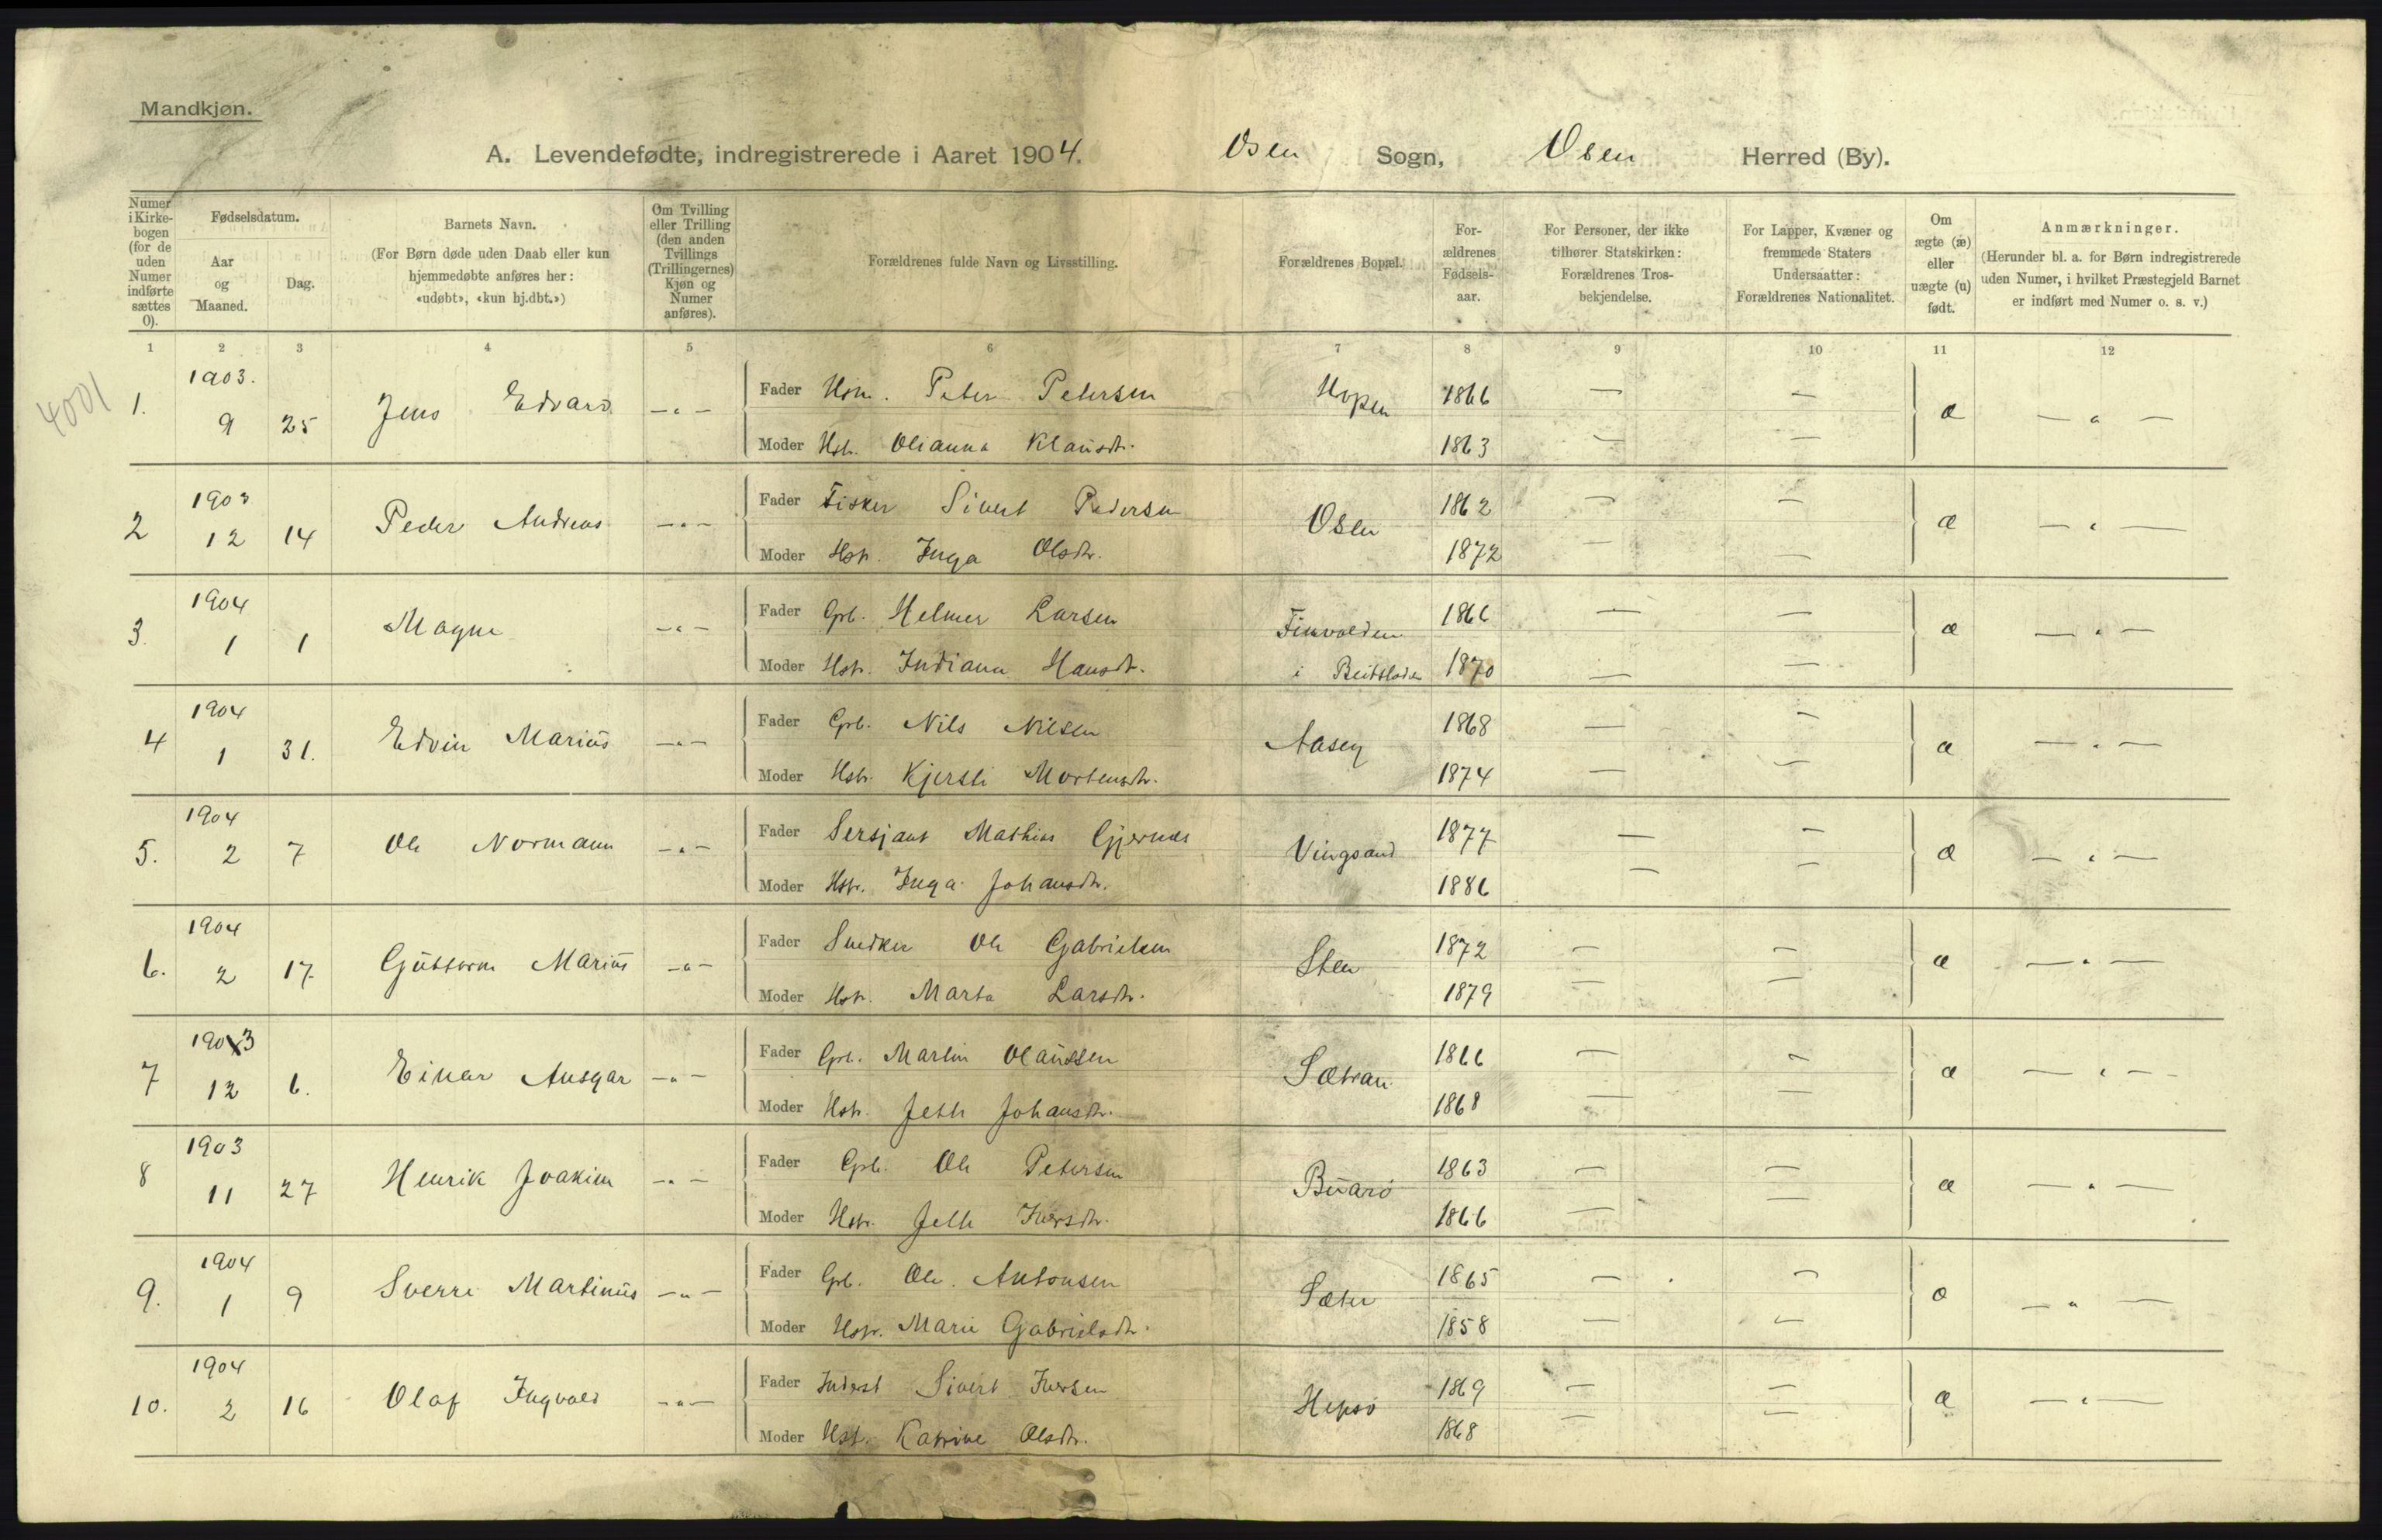 Mandkjøn.
A. Levendefødte, indregistrerede i Aaret 1904. Osen Sogn, Osen Herred (By).
Numer i Kirke-bogen (for de uden Numer indførte sættes 0).
Fødselsdatum.
Aar og Maaned.
Dag.
Barnets Navn.
(For Børn døde uden Daab eller kun hjemmedøbte anføres her: «udøbt», «kun hj.dbt.»)
Om Tvilling eller Trilling (den anden Tvillings (Trillingernes) Kjøn og Numer anføres).
Forældrenes fulde Navn og Livsstilling.
Forældrenes Bopæl.
For-ældrenes Fødsels-aar.
For Personer, der ikke tilhører Statskirken: Forældrenes Tros-bekjendelse.
For Lapper, Kvæner og fremmede Staters Undersaatter: Forældrenes Nationalitet.
Om ægte (æ) eller uægte (u) født.
Anmærkninger.
(Herunder bl. a. for Børn indregistrerede uden Numer, i hvilket Præstegjeld Barnet er indført med Numer o. s. v.)
1 2 3 4 5 6 7 8 9 10 11 12
4001
1903.
1. 9 25 Jens Edvard — " — Fader Hsm. Peter Petersen Hopen 1866 — — æ — " —
Moder Hst. Olianna Klausdtr. 1863 — —
1903
2 12 14 Peder Andreas — " — Fader Fisker Sivert Pedersen Osen 1862 — — æ — " —
Moder Hstr. Inga Olsdtr. 1872 — —
1904
3. 1 1 Magne — " — Fader Grb. Helmer Larsen Finvolden 1866 — — æ — " —
Moder Hstr. Indiana Hansdtr. i Beitstaden 1870 — —
1904
4 1 31. Edvin Marius — " — Fader Grb. Nils Nilsen Aaseg 1868 — — æ — " —
Moder Hstr. Kjersti Mortensdtr. 1874 — —
1904
5. 2 7 Ole Normann — " — Fader Sersjant Mathias Gjernes Vingsand 1877 — — æ — " —
Moder Hstr. Inga Johansdtr. 1886 — —
1904
6. 2 17 Guttorm Marius — " — Fader Snedker Ole Gabrielsen Sten 1872 — — æ — " —
Moder Hstr. Marta Larsdtr. 1879 — —
1903
7 12 6. Einar Ansgar — " — Fader Grb. Martin Olaussen Sætran 1866 — — æ — " —
Moder Hstr. Jette Johansdtr. 1868 — —
1903
8 11 27 Henrik Joakim — " — Fader Grb. Ole Petersen Buarø 1863 — — æ — " —
Moder Hstr. Jette Iversdtr. 1866 — —
1904
9. 1 9 Sverre Martinus — " — Fader Grb. Ole Antonsen Sæter 1865 — — æ — " —
Moder Hstr. Marie Gabrielsdtr. 1858 — —
1904
10. 2 16 Olaf Ingvald — " — Fader Inderst Sivert Iversen Hepsø 1869 — — æ — " —
Moder Hst. Katrine Olsdtr. 1868 — —